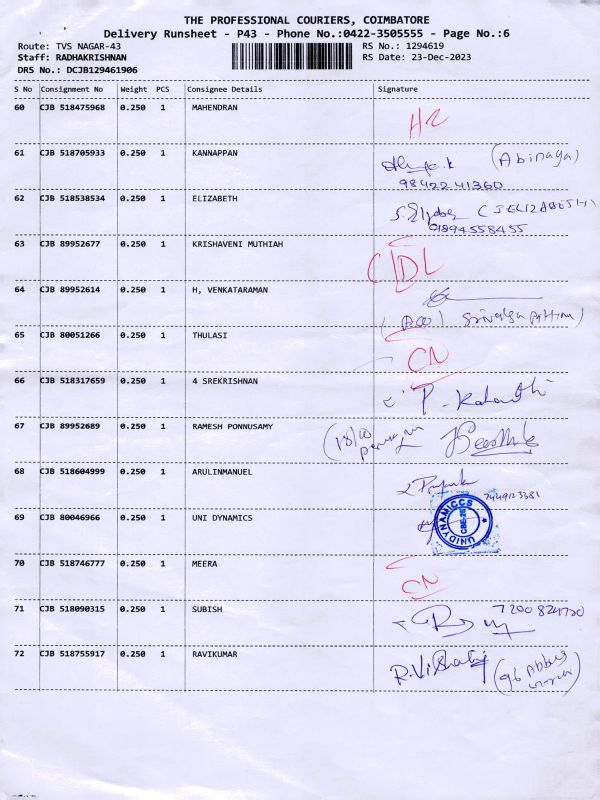 THE PROFESSIONAL COURIERS, COIMBATORE
Delivery Runsheet - P43 - Phone No.:0422-3505555 - Page No.:6
Route: TVS NAGAR-43 RS No.: 1294619
Staff: RADHAKRISHNAN RS Date: 23-Dec-2023
DRS No.: DCJB129461906
S No Consignment No Weight PCS Consignee Details Signature
60 CJB 518475968 0.250 1 MAHENDRAN
61 CJB 518705933 0.250 1 KANNAPPAN (Abinaya)
9842241360
62 CJB 518538534 0.250 1 ELIZABETH
01894558455
63 CJB 89952677 0.250 1 KRISHAVENI MUTHIAH
DL
64 CJB 89952614 0.250 1 H, VENKATARAMAN
65 CJB 80051266 0.250 1 THULASI
CN
66 CJB 518317659 0.250 1 4 SREKRISHNAN
67 CJB 89952689 0.250 1 RAMESH PONNUSAMY
68 CJB 518604999 0.250 1 ARULINMANUEL
69 CJB 80046966 0.250 1 UNI DYNAMICS UNIDYNAMICCS CBE-25
70 CJB 518746777 0.250 1 MEERA
CN
71 CJB 518090315 0.250 1 SUBISH
72 CJB 518755917 0.250 1 RAVIKUMAR